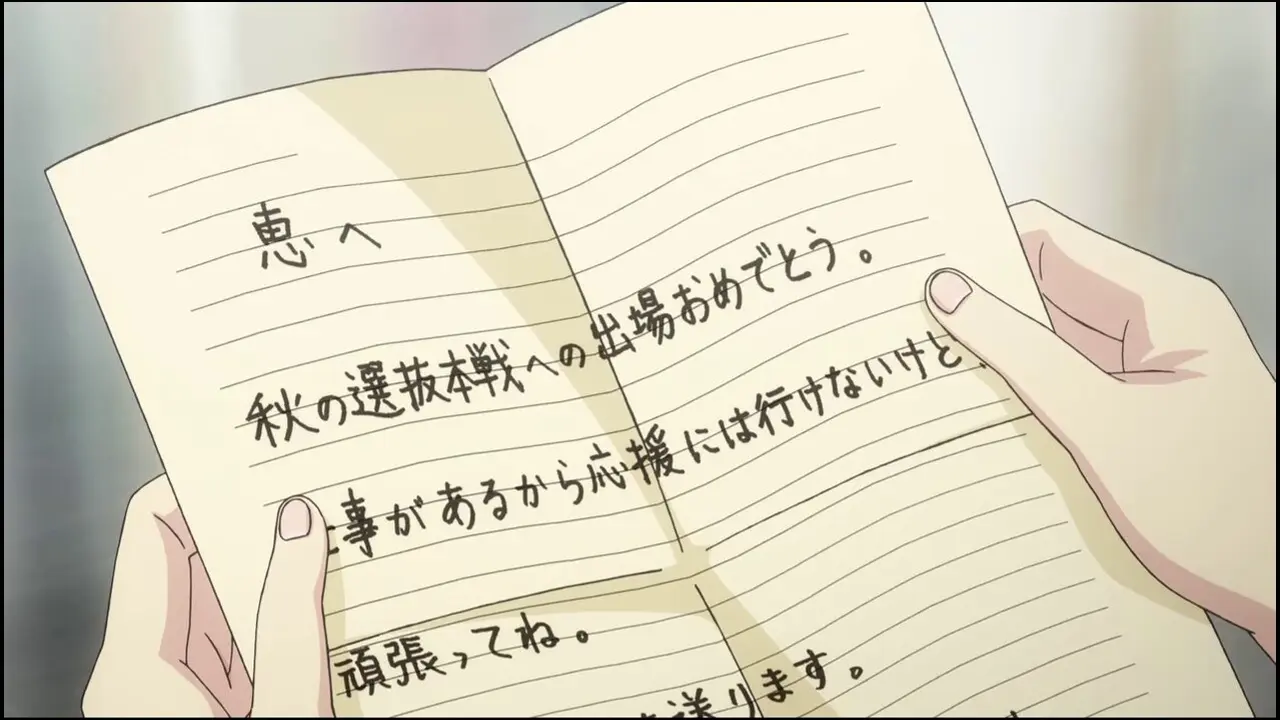 恵へ
秋の選抜本戦への出場おめでとう。
事があるから応援には行けないけと
頑張ってね。
送ります。